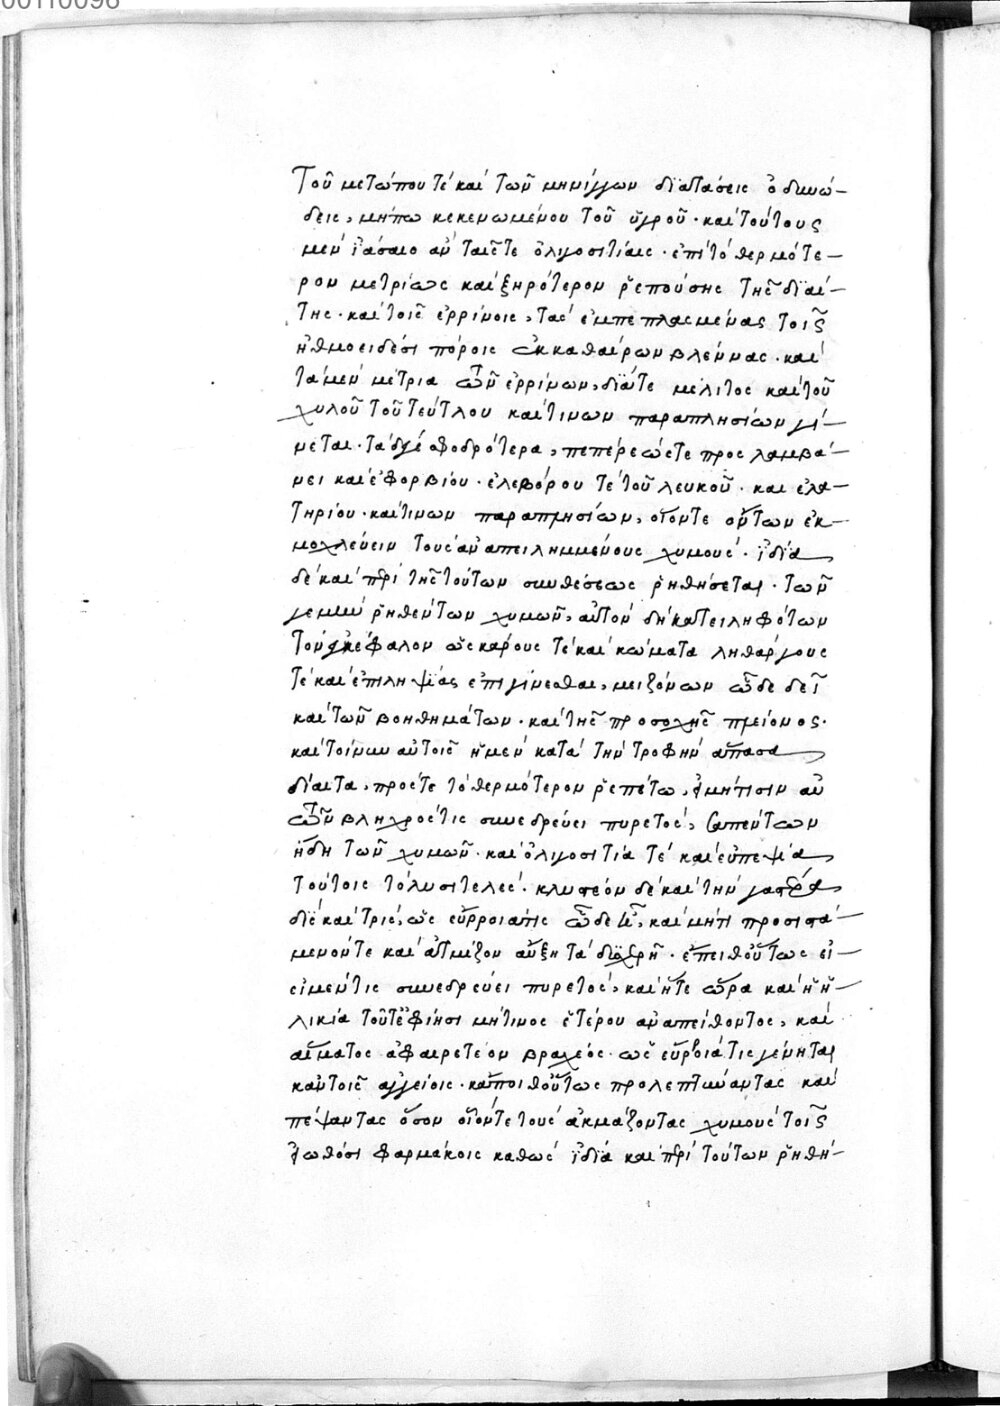 00110098
τοῦ μετώπου τὲ καὶ τῶν μηνίγγων διατάσεις ὀδυνώ-
δεις, μήπω κεκενωμένου τοῦ ὑγροῦ· καὶ τούτους
μὲν ἰάσαιο ἂν ταῖς τε ὀλιγοσιτίαις· ἐπὶ τὸ θερμότε-
ρον μετρίως καὶ ξηρότερον ῥεπούσης τῆς διαί-
της· καὶ τοῖς ἐρρίνοις, τὰς ἐμπεπλασμένας τοῖς
ἠθμοειδέσι πόροις ἐκκαθαίρων βλέννας· καὶ
τὰ μὲν μέτρια τῶν ἐρρίνων, διά τε μέλιτος καὶ τοῦ
χυλοῦ τοῦ τεύτλου καί τινων παραπλησίων γί-
νεται· τὰ δέ γε σφοδρότερα, πεπέρεώς τε προσλαμβά-
νει καὶ εὐφορβίου· ἐλεβόρου τὲ τοῦ λευκοῦ· καὶ ἐλα-
τηρίου· καί τινων παραπλησίων, οἵον τε ὄντων ἐκ-
μοχλεύειν τοὺς ἀναπειλημμένους χυμούς· ἰδία
δὲ καὶ περὶ τῆς τούτων συνθέσεως ῥηθήσεται· τῶν
γε μὴν ῥηθέντων χυμῶν, αὐτὸν δὴ κατειληφότων
τὸν ἐγκέφαλον ὡς κάρους τὲ καὶ κώματα ληθάργους
τὲ καὶ ἐπιληψίας ἐπιγίνεσθαι, μειζόνων ὧδε δεῖ
καὶ τῶν βοηθημάτων· καὶ τῆς προσοχῆς πλείονος·
καὶ τοίνυν αὐτοῖς ἡ μὲν κατὰ τὴν τροφὴν ἅπασα
δίαιτα, πρός τε τὸ θερμότερον ῥεπέτω, εἰ μή τισιν αὐ
τῶν βληχρός τις συνεδρεύει πυρετός, σαπέντων
ἤδη τῶν χυμῶν· καὶ ὀλιγοσιτία τὲ καὶ εὐπεψία
τούτοις τὸ λυσιτελές· κλυστέον δὲ καὶ τὴν γαστέρα
δὶς καὶ τρίς, ὡς εὔρροια τῆς ὧδε ᾖ, καὶ μή τι προσιστά-
μενόν τε καὶ ἀτμίζον αὔξη τὰ διαχρῆ· ἔπειθ' οὕτως εἰ
εἰ μέν τις συνεδρεύει πυρετός, καὶ ἥ τε ὥρα καὶ ἡ ἡ-
λικία τοῦτ' ἐφίησι μή τινος ἑτέρου ἀναπείθοντος, καὶ
αἵματος ἀφαιρετέον βραχέος· ὡς εὔροιά τις γένηται
κἀν τοῖς ἀγγείοις· κἄπειθ' οὕτως προλεπτύναντας καὶ
πέψαντας ὅσον οἷόν τε τοὺς ἀκμάζοντας χυμοὺς τοῖς
εἰωθόσι φαρμάκοις καθὼς ἰδία καὶ περὶ τούτων ῥηθή-